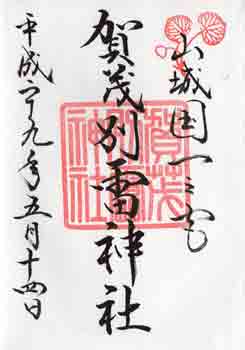 山城国一之宮
賀茂別雷神社
平成二十九年五月十四日
賀茂
別雷
神社